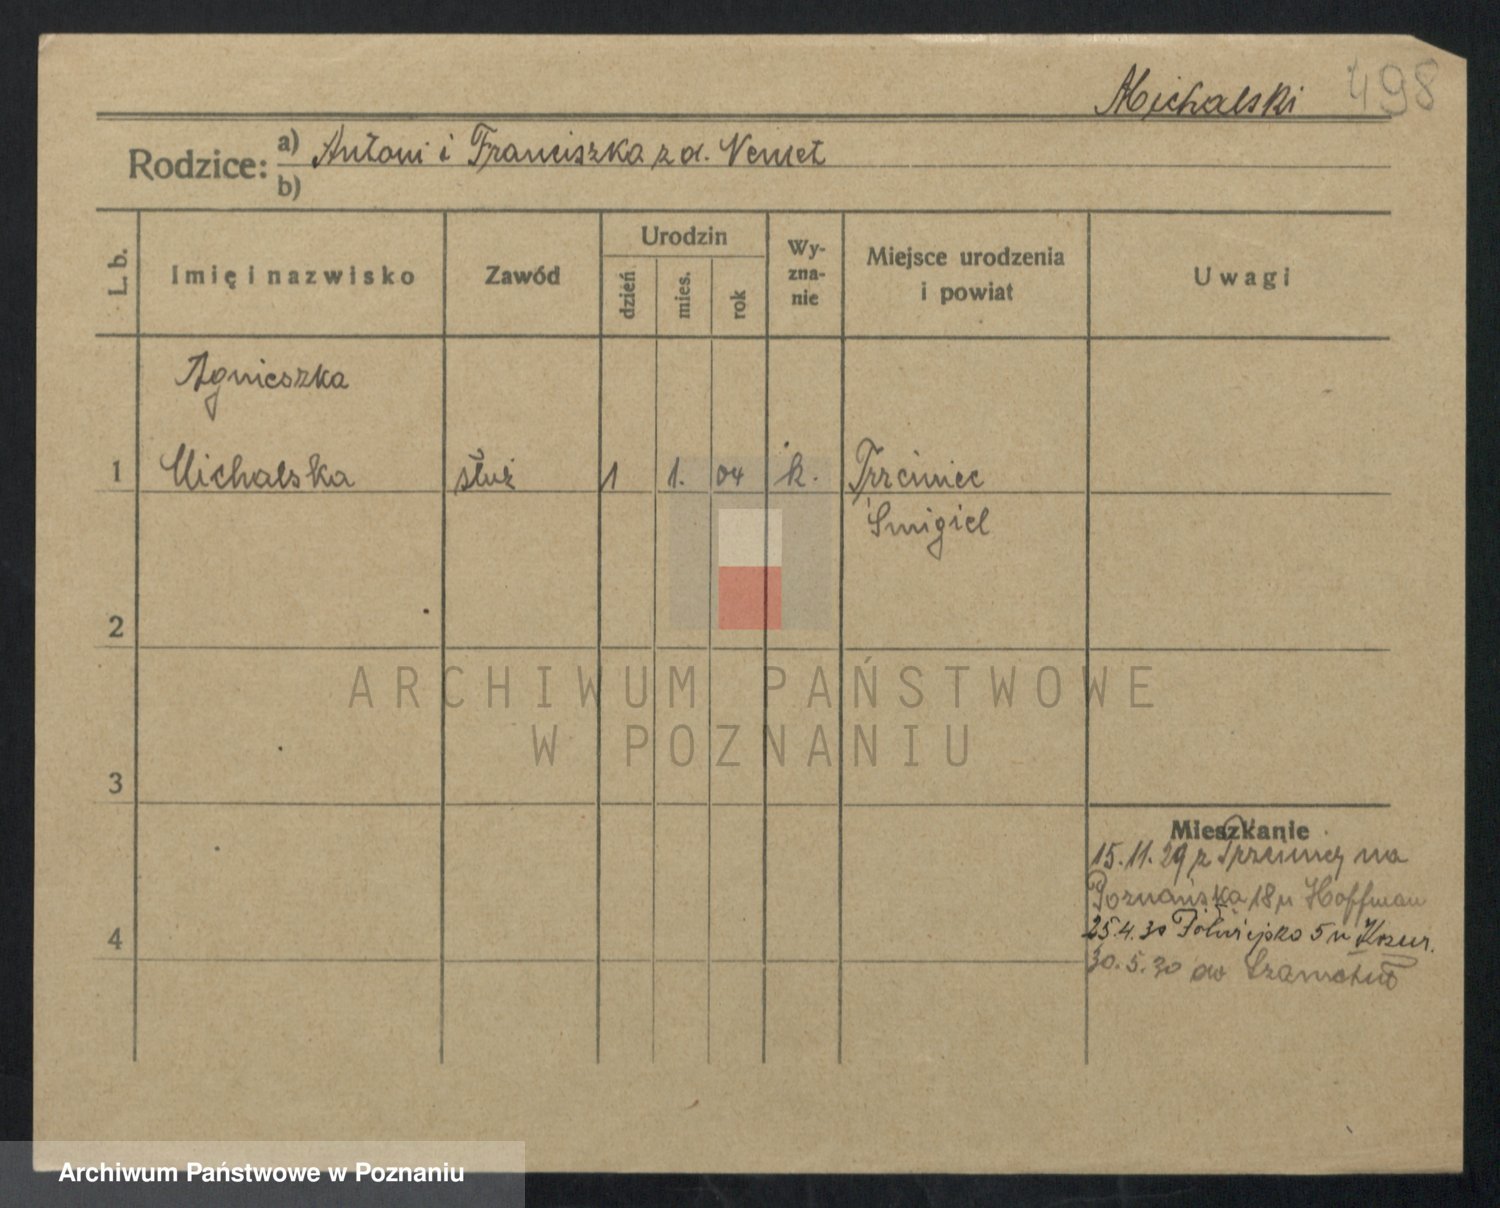 Michalski 498
Rodzice: a) Antoni i Franciszka z d. Nemet
b)
L. b.
Imię i nazwisko
Zawód
Urodzin
dzień
mies.
rok
Wy-
zna-
nie
Miejsce urodzenia
i powiat
Uwagi
Agnieszka
1 Michalska służ 1 1. 04 k. Trzciniec
Śmigiel
2
3
4
Mieszkanie
15.11.29 z na
Poznańska 18 u Hoffman
25.4.30 Półwiejska 5 u
30.5.30 do Szamotuł
ARCHIWUM PAŃSTWOWE
W POZNANIU
Archiwum Państwowe w Poznaniu